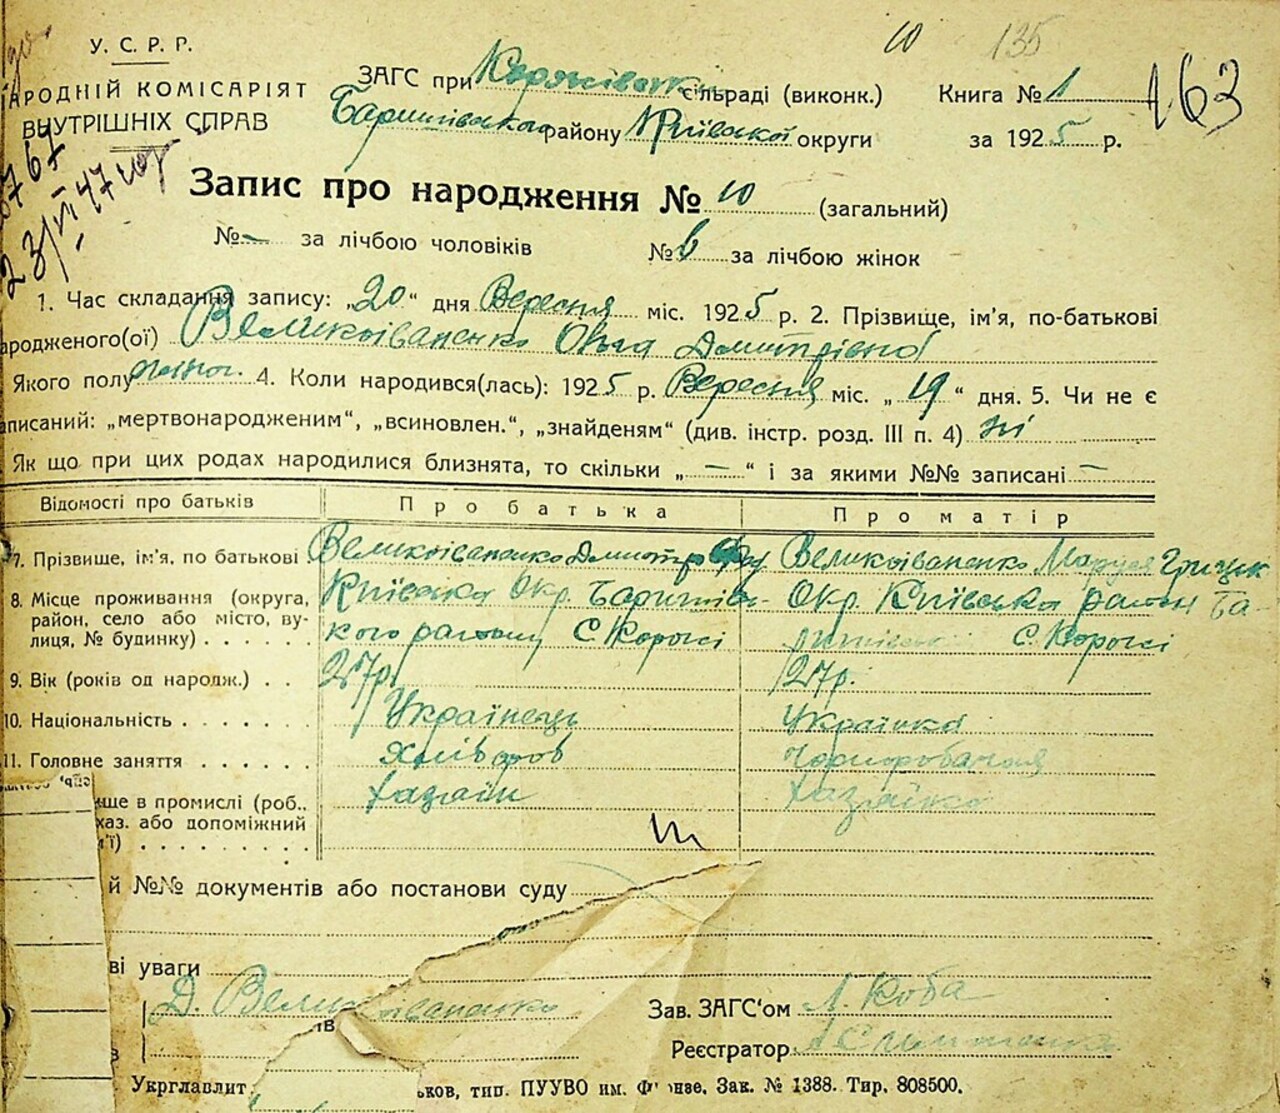 10 135
У. С. Р. Р.
АРОДНІЙ КОМІСАРІЯТ
ВНУТРІШНІХ СПРАВ
ЗАГС при сільраді (виконк.) Книга № 1 163
Баришівського району Київської округи за 1925 р.
Запис про народження № 10 (загальний)
№ – за лічбою чоловіків № 6 за лічбою жінок
1. Час складання запису: „20“ дня Вересня міс. 1925 р. 2. Прізвище, ім'я, по-батькові
ародженого(ої) Великоіваненко Ольга Дмитрівна
Якого полу жіноч. 4. Коли народився(лась): 1925 р. Вересня міс. „19“ дня. 5. Чи не є
аписаний: „мертвонародженим“, „всиновлен.“, „знайденям“ (див. інстр. розд. III п. 4) ні
Як що при цих родах народилися близнята, то скільки „ — “ і за якими №№ записані —
Відомості про батьків Про батька Про матір
7. Прізвище, ім'я, по батькові Великоіваненко Дмитро Великоіваненко Маруся
8. Місце проживання (округа, Київська Окр. Баришівсь- Окр. Київська район Ба-
район, село або місто, ву- кого району С. Коржі С. Коржі
лиця, № будинку)
9. Вік (років од народж.) 27р. 27р.
10. Національність Українець Українка
11. Головне заняття Хлібороб Чорноробочая
ище в промислі (роб., хазаїн хазяйка
хаз. або допоміжний
ї)
й №№ документів або постанови суду
ві уваги
Д. Великоіваненко Зав. ЗАГС'ом Л. Коба
ів
в Реєстратор
Укрглавліт ьков, тип. ПУУВО им. Ф нзе. Зак. № 1388. Тир. 808500.